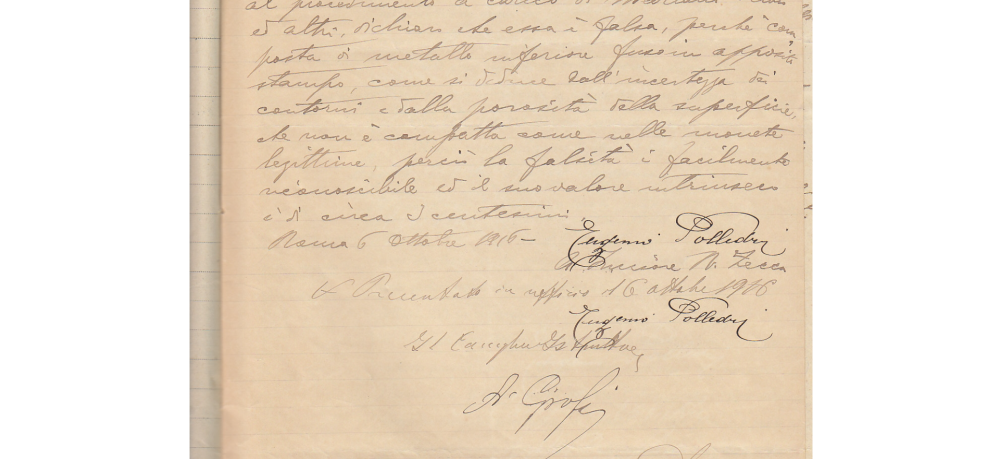 al procedimento a carico di
ed altri, dichiaro che essa è falsa, perchè com
posta di metallo inferiore fuso in apposito
stampo, come si deduce dall'incertezza dei
contorni e dalla porosità della superficie,
che non è compatta come nelle monete
legittime, perciò la falsità è facilmente
riconoscibile ed il suo valore intrinseco
è di circa 3 centesimi.
Roma 6 Ottobre 1916 –
Eugenio Polledri
Incisore R. Zecca
Presentato in ufficio il 6 ottobre 1916
Eugenio Polledri
Il Consigliere Istruttore